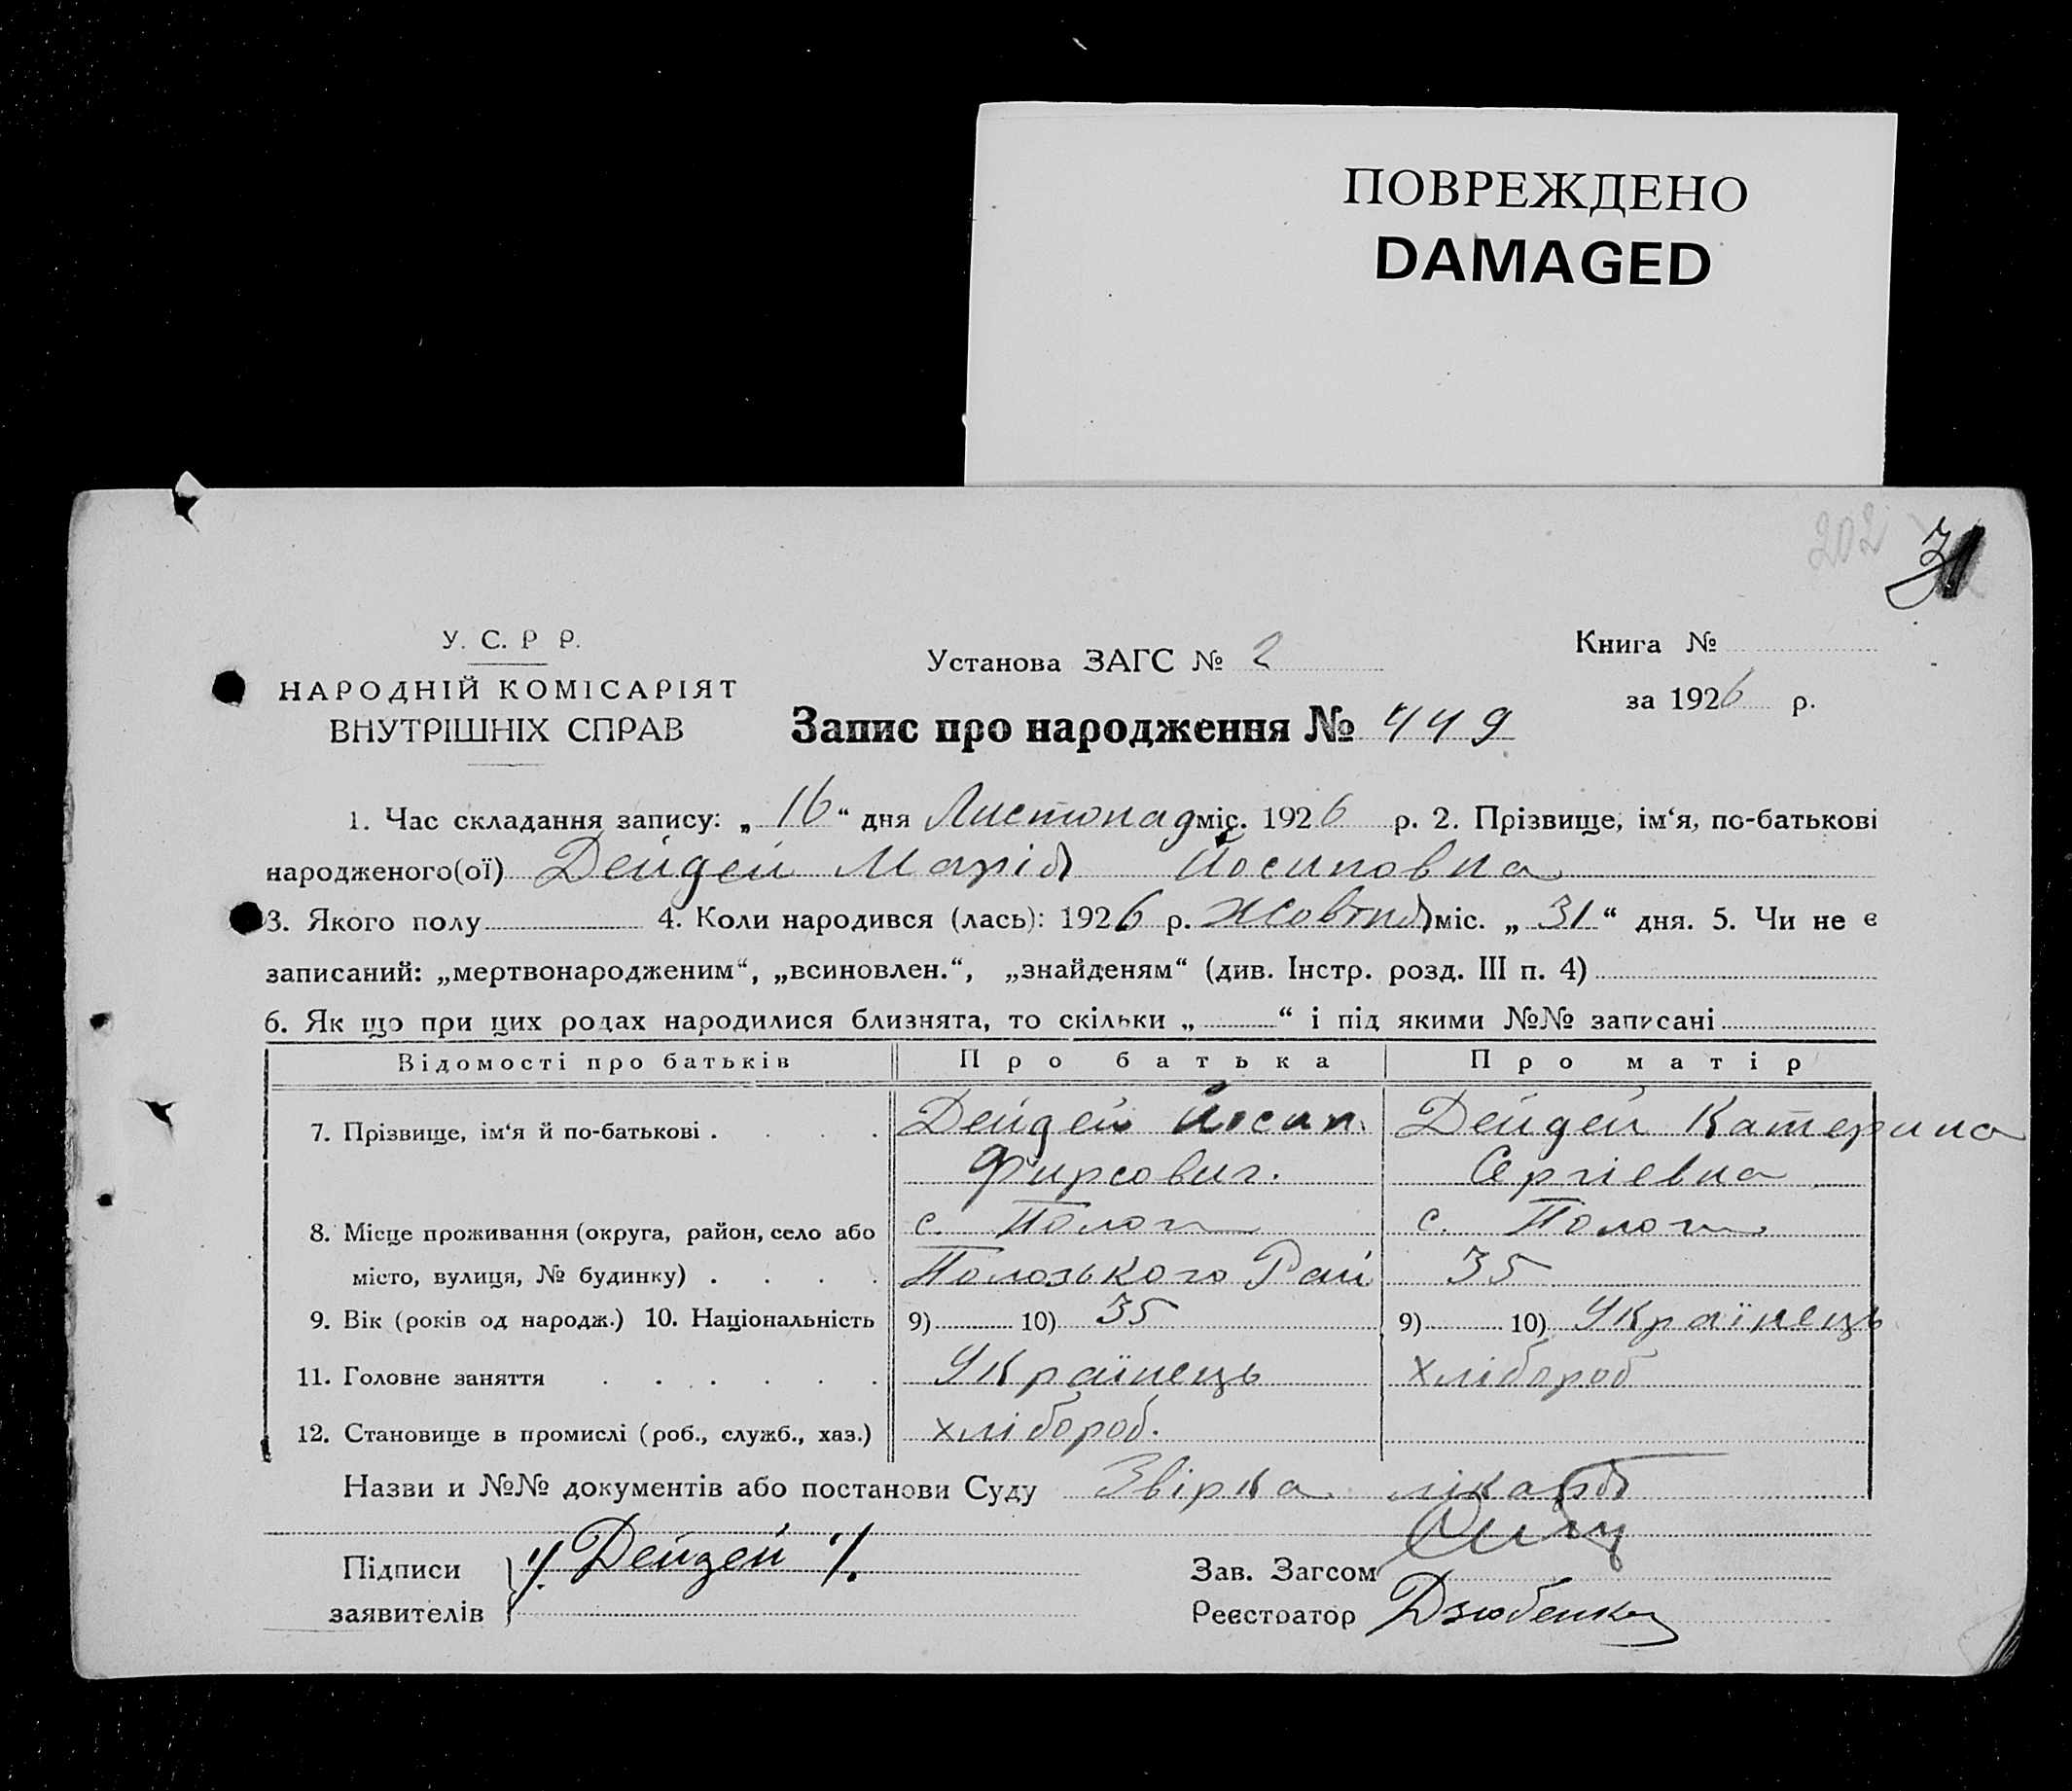 ПОВРЕЖДЕНО
DAMAGED
202
31
У. С. Р Р.
НАРОДНІЙ КОМІСАРІЯТ
ВНУТРІШНІХ СПРАВ
Установа ЗАГС № 2
Книга №
за 1926 р.
Запис про народження № 449
1. Час складання запису: „ 16 “ дня Листопад міс. 1926 р. 2. Прізвище, ім‘я, по-батькові
народженого(ої) Дейдей Марія Йосиповна
3. Якого полу 4. Коли народився (лась): 1926 р. Жовтня міс. „ 31 “ дня. 5. Чи не є
записаний: „мертвонародженим“, „всиновлен.“, „знайденям“ (див. Інстр. розд. III п. 4)
6. Як що при цих родах народилися близнята, то скільки „ “ і під якими №№ записані
Відомості про батьків Про батька Про матір
7. Прізвище, ім‘я й по-батькові . . . . Дейдей Йосип Дейдей Катерина
Фирсович. Сергіевна
8. Місце проживання (округа, район, село або с. Пологи с. Пологи
місто, вулиця, № будинку) . . . . Пологського Рай 35
9. Вік (років од народж.) 10. Національність 9) 10) 35 9) 10) Українець
11. Головне заняття . . . . . . Українець хлібороб
12. Становище в промислі (роб., служб., хаз.) хлібороб.
Назви и №№ документів або постанови Суду Звірка лікаря
Підписи /. Дейдей /.
заявителів
Зав. Загсом
Реєстратор Дзюбенко